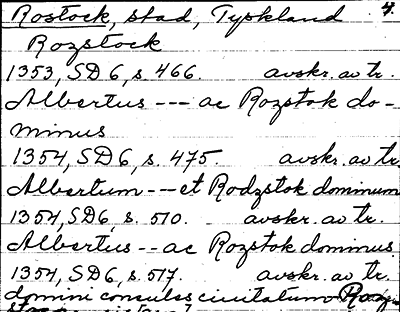 Rostock, stad, Tyskland 4.
Rozstock
1353, SD 6, s. 466. avskr. av tr.
Albertus --- ac Rozstok do-
minus
1354, SD 6, s. 475. avskr. av tr.
Albertum --- et Rodzstok dominum
1354, SD6, s. 510. avskr. av tr.
Albertus -- ac Rozstok dominus.
1354, SD 6, s. 517. avskr. av tr.
domini consules ciuitatum